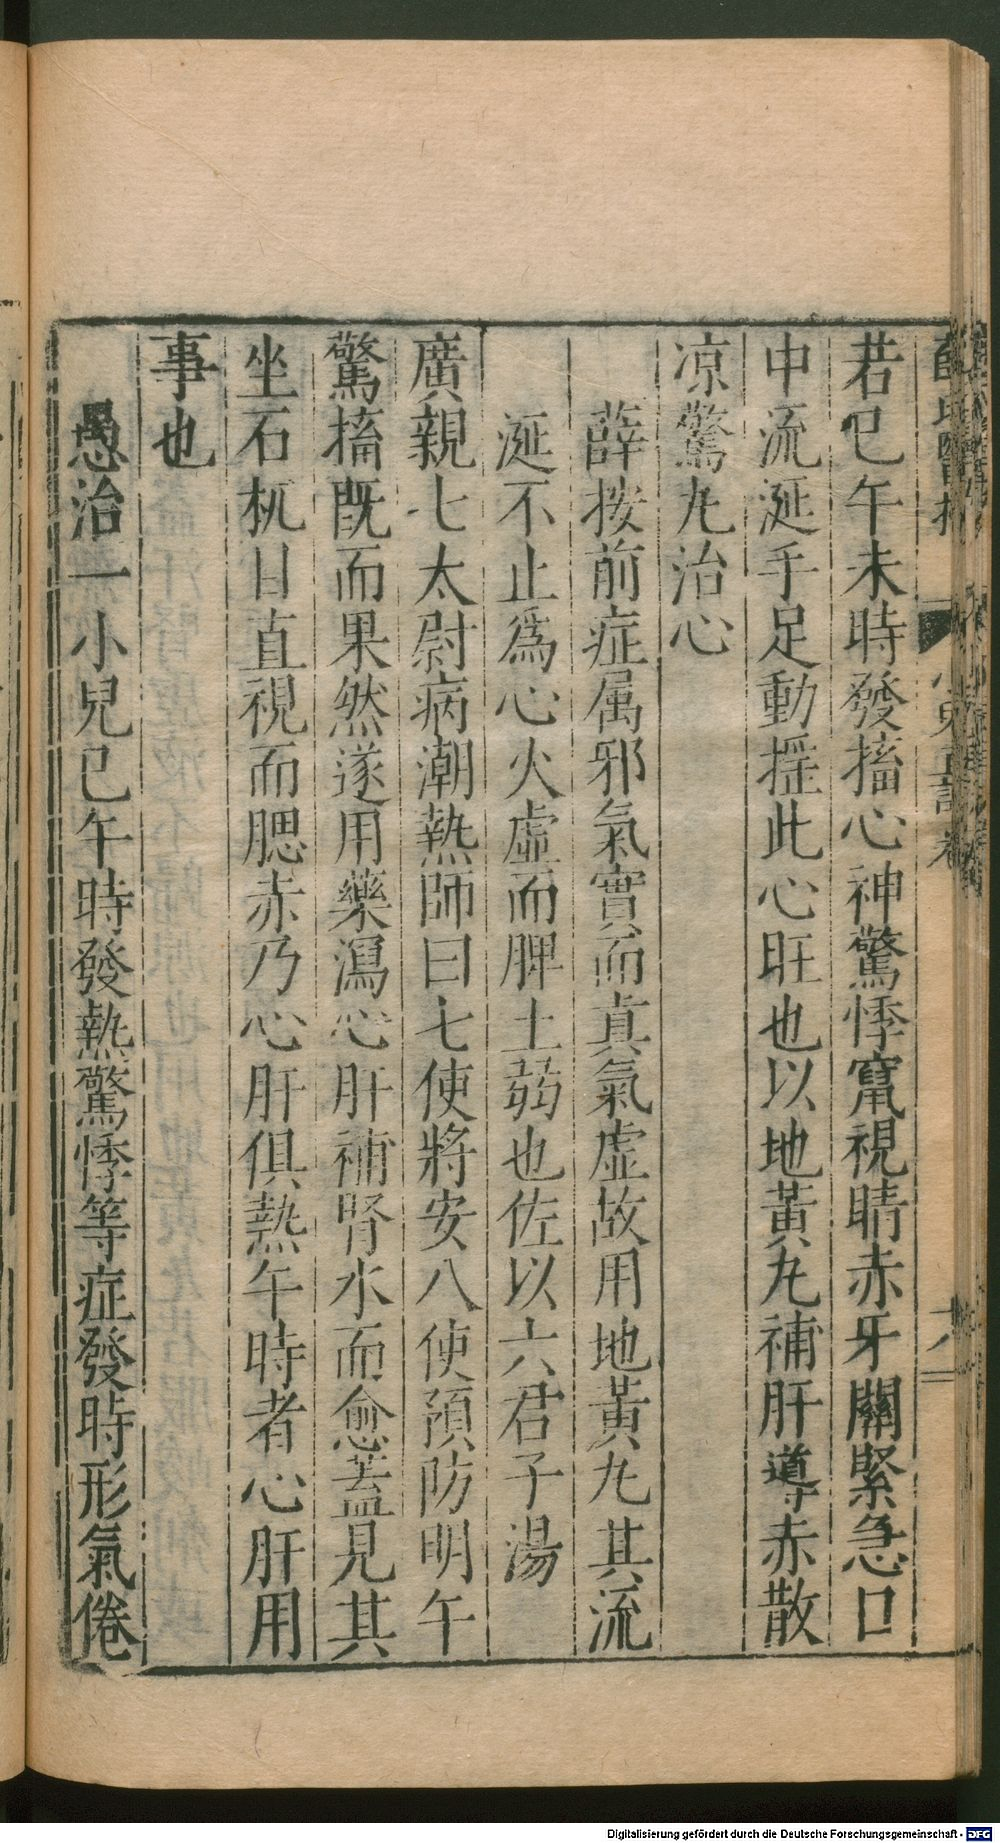 若巳午未時發搐心神驚悸竄視睛赤牙關緊急口
中流涎手足動揺此心旺也以地黃丸補肝導赤散
凉驚丸治心
薛按前症属邪氣實而真氣虛故用地黃丸其流
涎不止爲心火虛而脾土弱也佐以六君子湯
廣親七太尉病潮熱師曰七使將安八使預防明午
驚搐既而果然遂用藥瀉心肝補腎水而愈蓋見其
坐石杌目直視而腮赤乃心肝俱熱午時者心肝用
事也
愚治一小兒巳午時發熱驚悸等症發時形氣倦
Digitalisierung gefördert durch die Deutsche Forschungsgemeinschaft - DFG